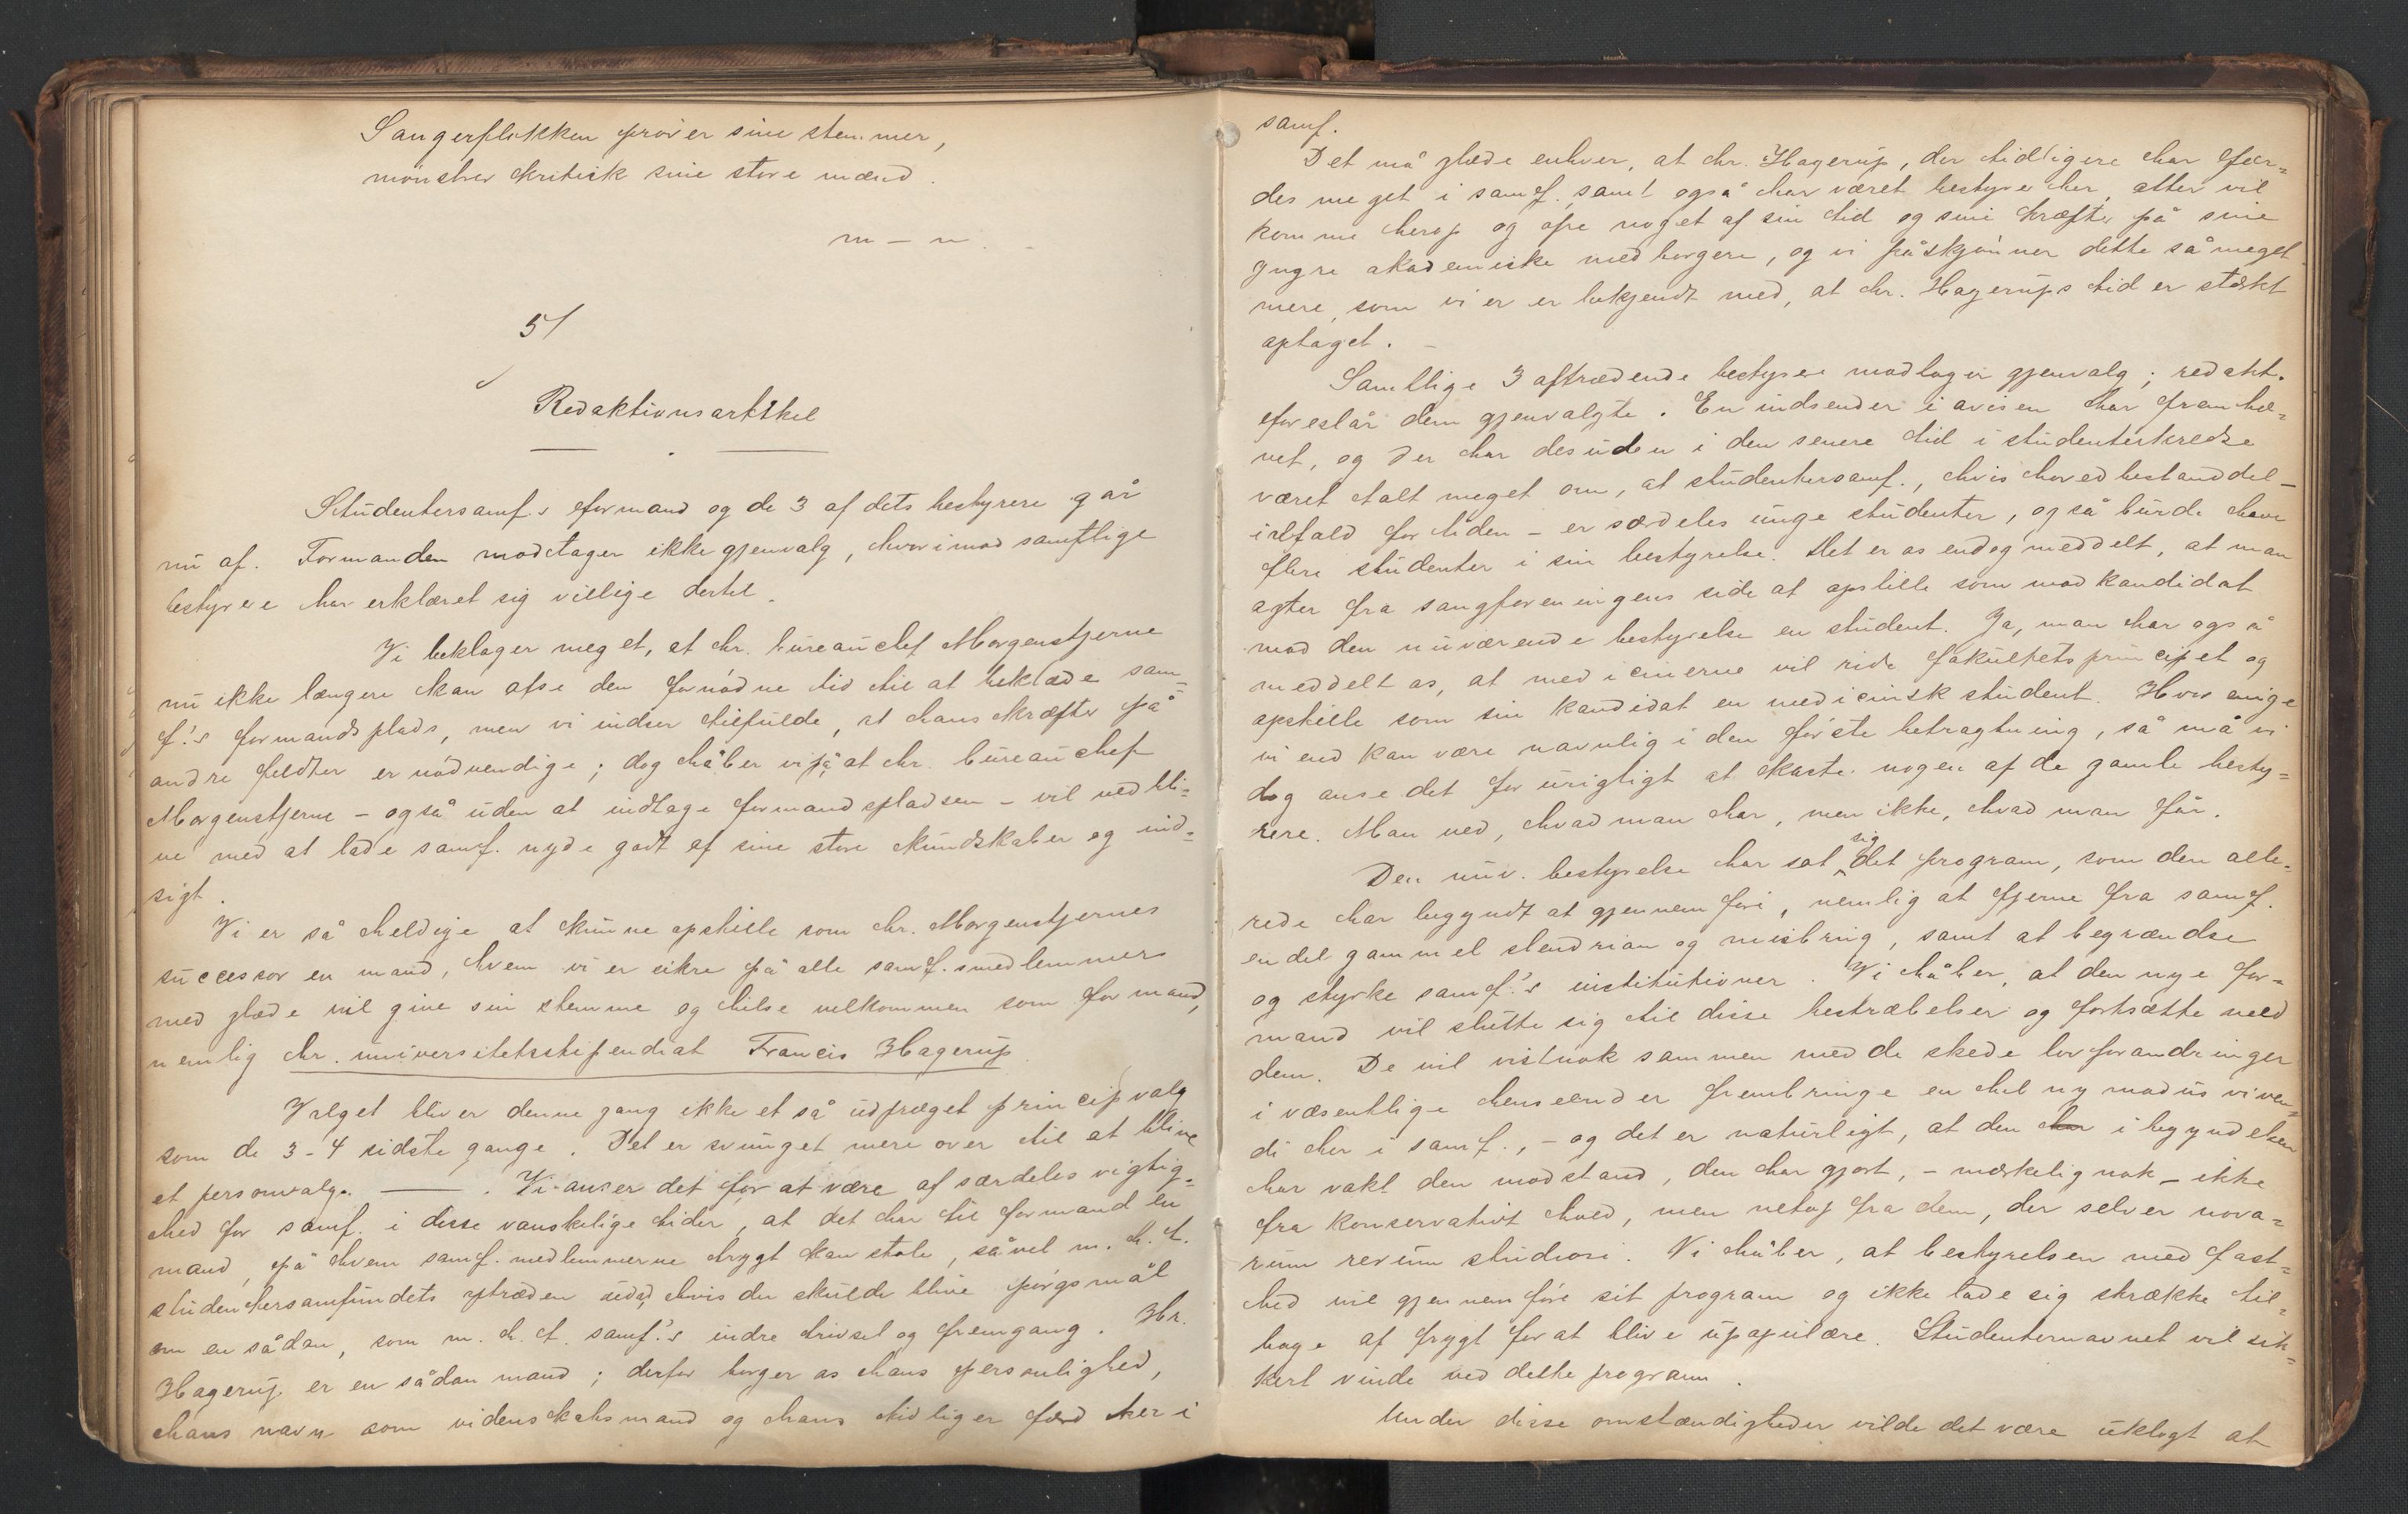 Sangerflokken prøver sine stemmer,
mønstrer kritisk sine store mænd.
m – n.
5/
Redaktionsartikel
Studentersamf.s formand og de 3 af dets bestyrere går
nu af. Formanden modtager ikke gjenvalg, hvorimod samtlige
bestyrere har erklæret sig villige dertil.
Vi beklager meget, at hr. bureauchef Morgenstjerne
nu ikke længere kan afse den fornødne tid til at beklæde sam-
f.'s formandsplads, men vi indser tilfulde, at hans kræfter på
andre feldter er nødvendige; dog håber vi på, at hr. bureauchef
Morgenstjerne – også uden at indtage formandspladsen – vil vedbli-
ve med at lade samf. nyde godt af sine store kundskaber og ind-
sigt.
Vi er så heldige at kunne opstille som hr. Morgenstjernes
successor en mand, hvem vi er sikre på alle samf.s medlemmer
med glæde vil give sin stemme og hilse velkommen som formand,
nemlig hr. universitetsstipendiat Francis Hagerup.
Valget bliver denne gang ikke et så udpræget principvalg
som de 3-4 sidste gange. Det er svunget mere over til at blive
et personvalg. — . Vi anser det for at være af særdeles vigtig-
hed for samf. i disse vanskelige tider, at det har til formand en
mand, på hvem samf.medlemmerne trygt kan stole, såvel m. h. t.
studentersamfundets optræden udad, hvis der skulde blive spørgsmål
om en sådan, som m. h. t. samf.'s indre trivsel og fremgang. Hr.
Hagerup er en sådan mand; derfor borger os hans personlighed,
hans navn som videnskabsmand og hans tidligere færd her i
samf.
Det må glæde enhver, at hr. Hagerup, der tidligere har fær-
des meget i samf. samt også har været bestyrer her, atter vil
komme herop og ofre noget af sin tid og sine kræfter på sine
yngre akademiske medborgere, og vi påskjønner dette så meget
mere, som vi er er bekjendt med, at hr. Hagerups tid er stærkt
optaget. –
Samtlige 3 aftrædende bestyrere modtager gjenvalg; redakt.
foreslår dem gjenvalgte. En indsender i avisen har fremhæ-
vet, og der har desuden i den senere tid i studenterkredse
været talt meget om, at studentersamf., hvis hovedbestanddel –
ialfald for tiden – er særdeles unge studenter, også burde have
flere studenter i sin bestyrelse. Det er os endog meddelt, at man
agter fra sangforeningens side at opstille som modkandidat
mod den nuværende bestyrelse en student. Ja, man har også
meddelt os, at medicinerne vil ride fakultetsprincipet og
opstille som sin kandidat en medicinsk student. Hvor enige
vi end kan være navnlig i den første betragtning, så må vi
dog anse det for urigtigt at kaste nogen af de gamle besty-
rere. Man ved, hvad man har, men ikke, hvad man får.
Den nuv. bestyrelse har sat sig det program, som den alle-
rede har begyndt at gjennemføre, nemlig at fjerne fra samf.
en del gammel slendrian og misbrug, samt at begrændse
og styrke samf.'s institutioner. Vi håber, at den nye for-
mand vil slutte sig til disse bestræbelser og fortsætte med
dem. De vil vistnok sammen med de skede lovforandringer
i væsentlige henseender frembringe en hel ny modus viven-
di her i samf., – og det er naturligt, at den har i begyndelsen
har vakt den modstand, den har gjort, – mærkelig nok – ikke
fra konservativt hold, men netop fra dem, der selv er nova-
rum rerum studiosi. Vi håber, at bestyrelsen med fast-
hed vil gjennemføre sit program og ikke lade sig skrække til-
bage af frygt for at blive upopulære. Studenternavnet vil sik-
kert vinde ved dette program.
Under disse omstændigheder vilde det være uklogt at